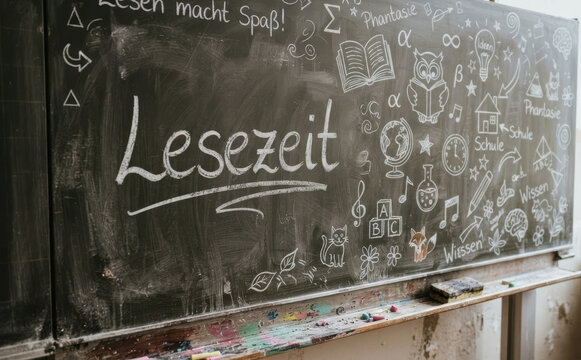 Lesen macht Spaß!
Phantasie
Ideen
Lesezeit
Phantasie
Schule
Schule
A
B C
Wissen
Wissen